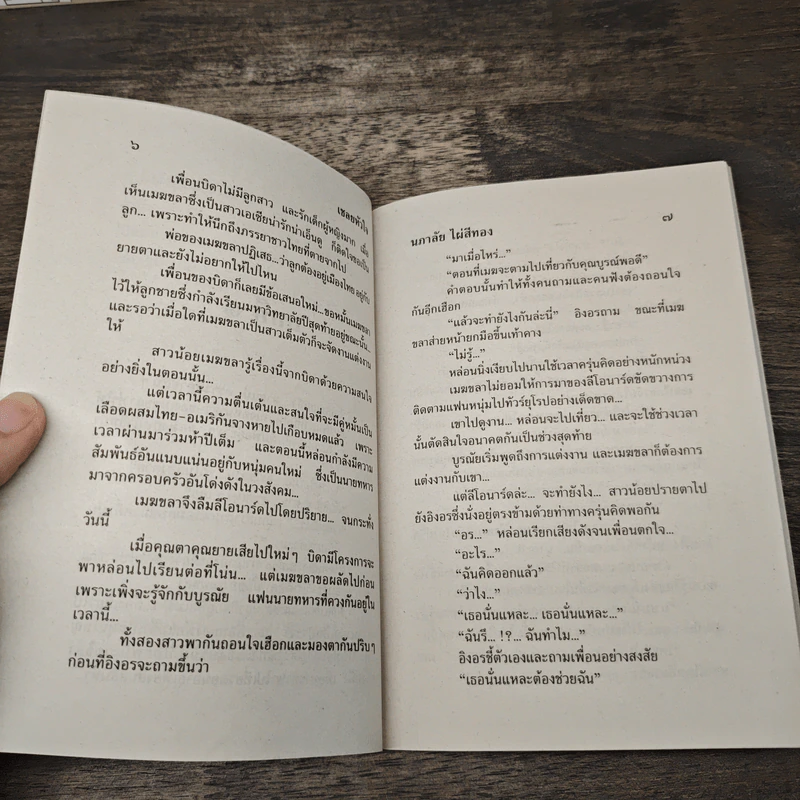 ๖
เชลยหัวใจ
เพื่อนบิดาไม่มีลูกสาว และรักเด็กผู้หญิงมาก เมื่อ
เห็นเมฆขลาซึ่งเป็นสาวเอเชียน่ารักน่าเอ็นดู ก็ติดใจขอเป็น
ลูก... เพราะทำให้นึกถึงภรรยาชาวไทยที่ตายจากไป
พ่อของเมฆขลาปฏิเสธ...ว่าลูกต้องอยู่เมืองไทย อยู่กับ
ยายตาและยังไม่อยากให้ไปไหน
เพื่อนของบิดาก็เลยมีข้อเสนอใหม่...ขอหมั้นเมฆขลา
ไว้ให้ลูกชายซึ่งกำลังเรียนมหาวิทยาลัยปีสุดท้ายอยู่ขณะนั้น...
และรอว่าเมื่อใดที่เมฆขลาเป็นสาวเต็มตัวก็จะจัดงานแต่งงาน
ให้
สาวน้อยเมฆขลารู้เรื่องนี้จากบิดาด้วยความสนใจ
อย่างยิ่งในตอนนั้น...
แต่เวลานี้ความตื่นเต้นและสนใจที่จะมีคู่หมั้นเป็น
เลือดผสมไทย-อเมริกันจางหายไปเกือบหมดแล้ว เพราะ
เวลาผ่านมาร่วมห้าปีเต็ม และตอนนี้หล่อนกำลังมีความ
สัมพันธ์อันแนบแน่นอยู่กับหนุ่มคนใหม่ ซึ่งเป็นนายทหาร
มาจากครอบครัวอันโด่งดังในวงสังคม...
เมฆขลาจึงลืมลีโอนาร์ดไปโดยปริยาย... จนกระทั่ง
วันนี้
เมื่อคุณตาคุณยายเสียไปใหม่ๆ บิดามีโครงการจะ
พาหล่อนไปเรียนต่อที่โน่น... แต่เมฆขลาขอผลัดไปก่อน
เพราะเพิ่งจะรู้จักกับบูรณัย แฟนนายทหารที่ควงกันอยู่ใน
เวลานี้...
ทั้งสองสาวพากันถอนใจเฮือกและมองตากันปริบๆ
ก่อนที่อิงอรจะถามขึ้นว่า
นภาลัย ไผ่สีทอง
๗
“มาเมื่อไหร่...”
“ตอนที่เมฆจะตามไปเที่ยวกับคุณบูรณ์พอดี”
คำตอบนั้นทำให้ทั้งคนถามและคนฟังต้องถอนใจ
กันอีกเฮือก
“แล้วจะทำยังไงกันล่ะนี่” อิงอรถาม ขณะที่เมฆ
ขลาส่ายหน้ายกมือขึ้นเท้าคาง
“ไม่รู้...”
หล่อนนิ่งเงียบไปนานใช้เวลาครุ่นคิดอย่างหนักหน่วง
เมฆขลาไม่ยอมให้การมาของลีโอนาร์ดขัดขวางการ
ติดตามแฟนหนุ่มไปทัวร์ยุโรปอย่างเด็ดขาด...
เขาไปดูงาน... หล่อนจะไปเที่ยว... และจะใช้ช่วงเวลา
นั้นตัดสินใจอนาคตกันเป็นช่วงสุดท้าย
บูรณัยเริ่มพูดถึงการแต่งงาน และเมฆขลาก็ต้องการ
แต่งงานกับเขา...
แต่ลีโอนาร์ดล่ะ... จะทำยังไง... สาวน้อยปรายตาไป
ยังอิงอรซึ่งนั่งอยู่ตรงข้ามด้วยท่าทางครุ่นคิดพอกัน
“อร...” หล่อนเรียกเสียงดังจนเพื่อนตกใจ...
“อะไร...”
“ฉันคิดออกแล้ว”
“ว่าไง...”
“เธอนั่นแหละ... เธอนั่นแหละ...”
“ฉันรึ... !?... ฉันทำไม...”
อิงอรชี้ตัวเองและถามเพื่อนอย่างสงสัย
“เธอนั่นแหละต้องช่วยฉัน”